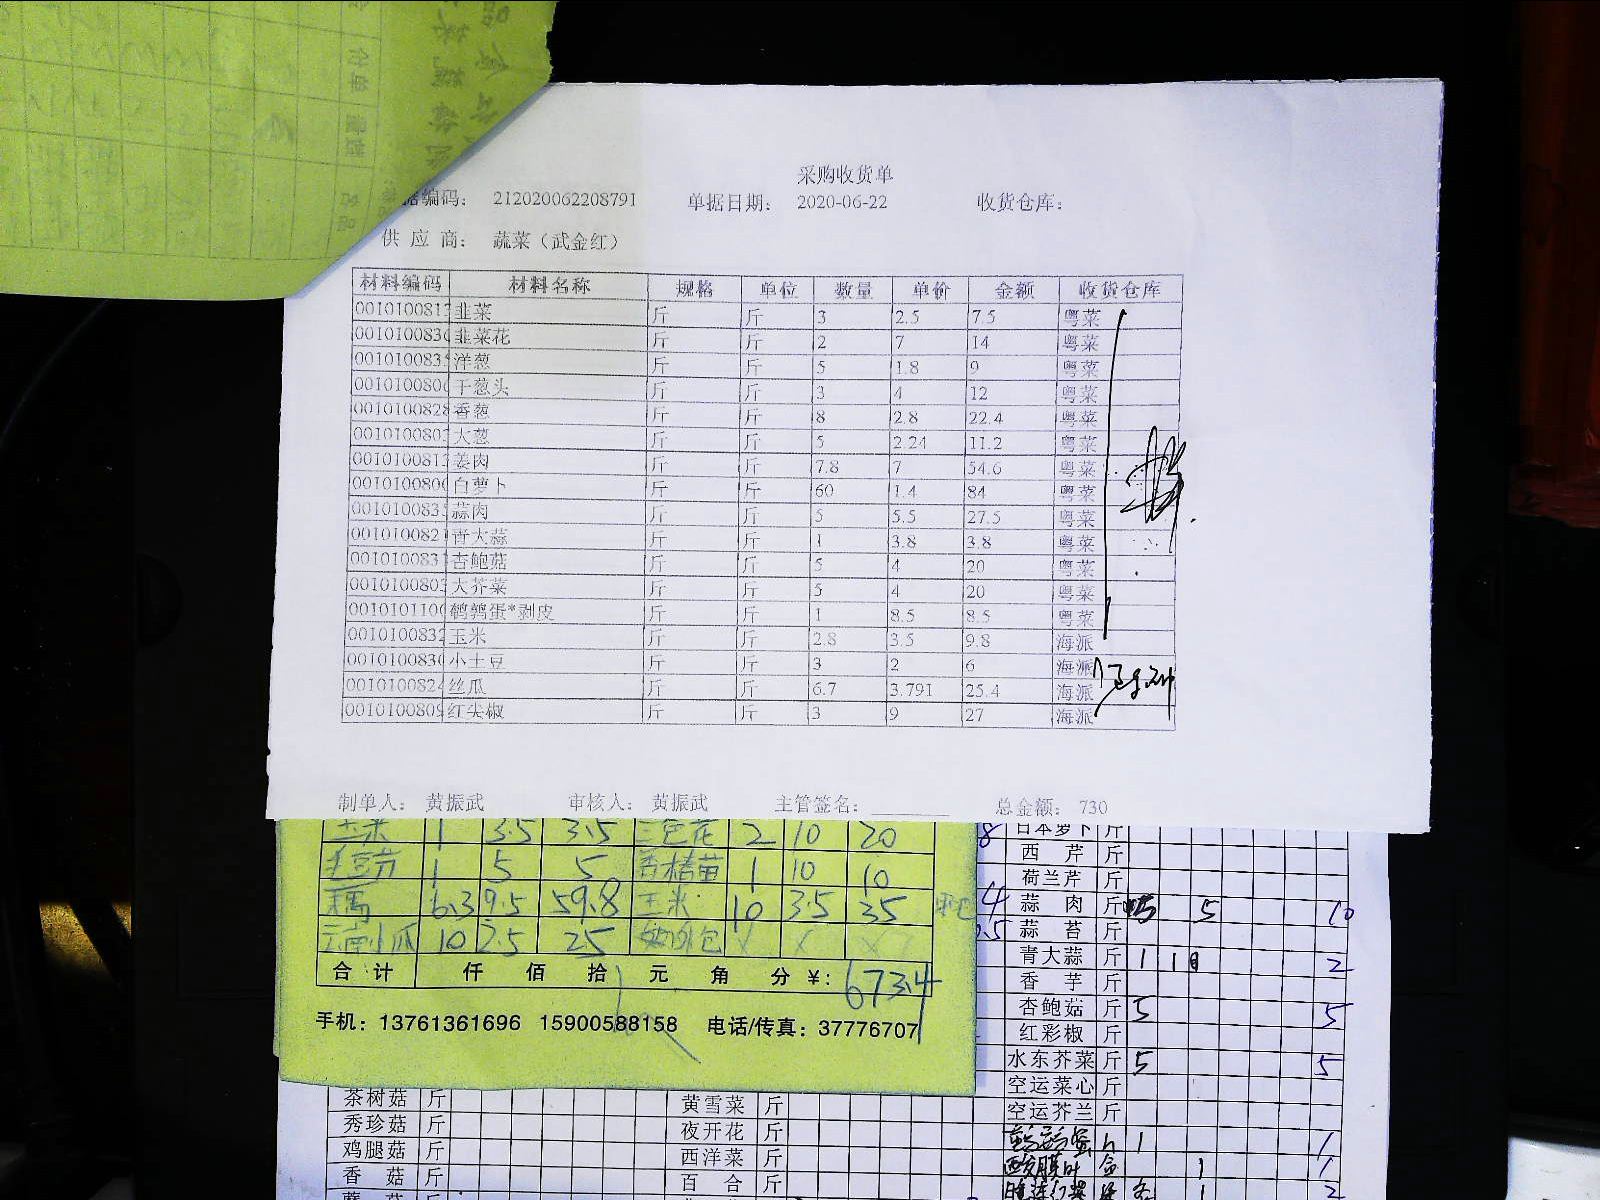 采购收货单
据编码： 212020062208791 单据日期： 2020-06-22 收货仓库：
供 应 商： 蔬菜（武金红）
材料编码 材料名称 规格 单位 数量 单价 金额 收货仓库
0010100081 韭菜 斤 斤 3 2.5 7.5 粤菜
001010083 韭菜花 斤 斤 2 7 14 粤菜
001010083 洋葱 斤 斤 5 1.8 9 粤菜
001010080 干葱头 斤 斤 3 4 12 粤菜
001010082 香葱 斤 斤 8 2.8 22.4 粤菜
001010080 大葱 斤 斤 5 2.24 11.2 粤菜
001010081 姜肉 斤 斤 7.8 7 54.6 粤菜
001010080 白萝卜 斤 斤 60 1.4 84 粤菜
001010083 蒜肉 斤 斤 5 5.5 27.5 粤菜
001010082 青大蒜 斤 斤 1 3.8 3.8 粤菜
001010083 杏鲍菇 斤 斤 5 4 20 粤菜
001010080 大芥菜 斤 斤 5 4 20 粤菜
001010110 鹌鹑蛋*剥皮 斤 斤 1 8.5 8.5 粤菜
001010083 玉米 斤 斤 2.8 3.5 9.8 海派
001010083 小土豆 斤 斤 3 2 6 海派
001010082 丝瓜 斤 斤 6.7 3.791 25.4 海派
001010080 红尖椒 斤 斤 3 9 27 海派
制单人： 黄振武 审核人： 黄振武 主管签名： 总金额： 730
玉米 1 3.5 3.5 三色花 2 10 20
毛豆节 1 5 5 香椿苗 1 10 10
藕 6.3 9.5 59.8 玉米 10 3.5 35
云南小瓜 10 2.5 25
合 计 仟 佰 拾 元 角 分 ¥： 673.4
手机：13761361696 15900588158 电话/传真：37776707
日本萝卜 斤
西 芹 斤
荷兰芹 斤
蒜 肉 斤 5 5 10
蒜 苔 斤
青大蒜 斤 1 1 2
香 芋 斤
杏鲍菇 斤 5 5
红彩椒 斤
水东芥菜 斤 5 5
空运菜心 斤
空运芥兰 斤
茶树菇 斤 黄雪菜 斤
秀珍菇 斤 夜开花 斤
鸡腿菇 斤 西洋菜 斤
香 菇 斤 百 合 斤